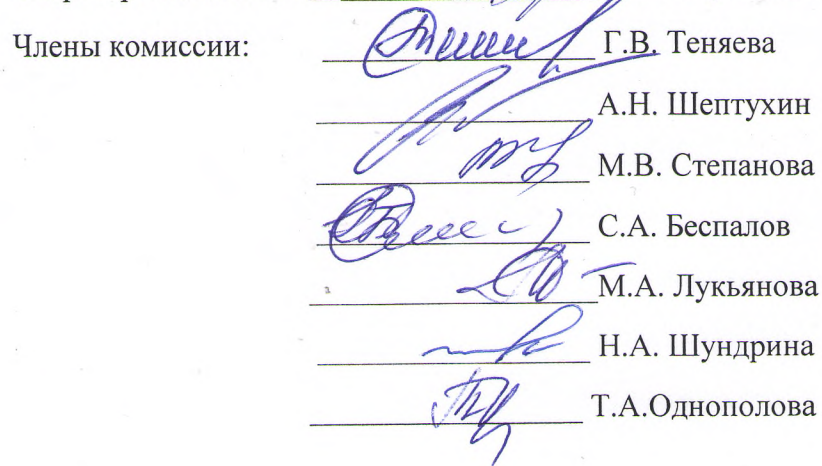 Члены комиссии: Г.В. Теняева
А.Н. Шептухин
М.В. Степанова
С.А. Беспалов
М.А. Лукьянова
Н.А. Шундрина
Т.А.Однополова